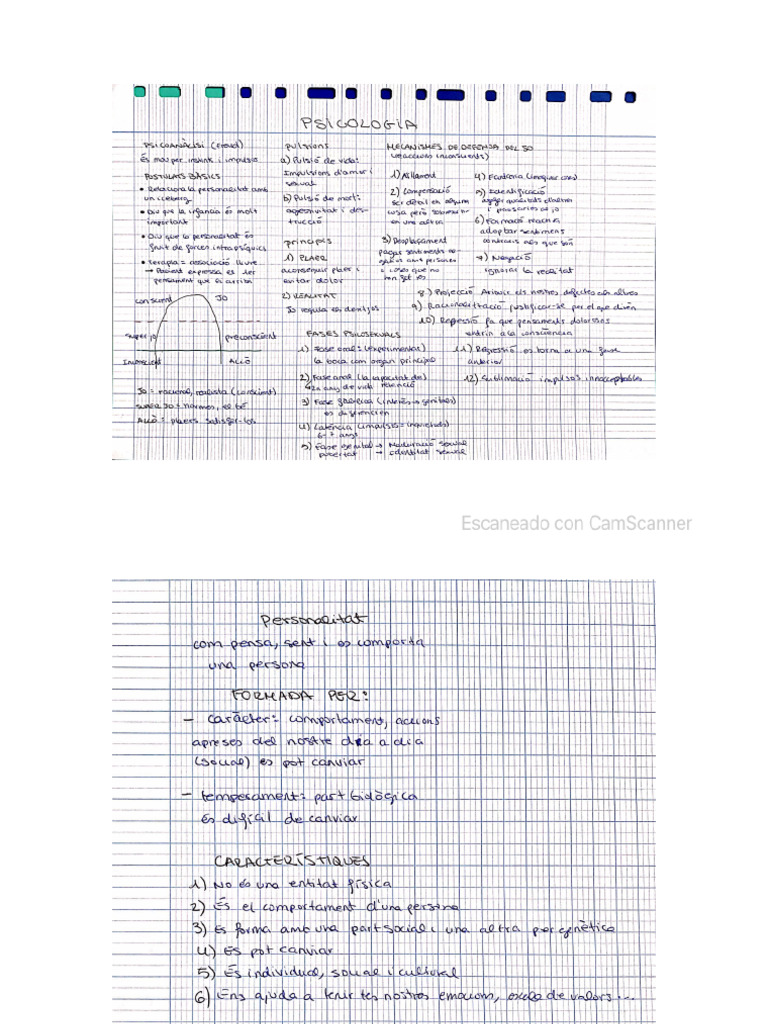 PSICOLOGIA
PSICOANÀLISI (Freud)
És mou per instint i impulsió
POSTULATS BÀSICS
• Relaciona la personalitat amb
un iceberg
• Diu que la infància és molt
important
• Diu que la personalitat és
fruit de forces intrapsíquiques
• teràpia = associació lliure
→ Pacient expressa el 1er
pensament que li arriba
conscient
JO
super jo
preconscient
Inconscient
ALLÒ
JO = racional, realista (conscient)
SUPER JO = normes, el bé
ALLÒ = plaers satisfer-los
PULSIONS
a) Pulsió de vida:
Impulsions d'amor i
sexual
b) Pulsió de mort:
agressivitat i des-
trucció
principis
1) PLAER
aconseguir plaer i
evitar dolor
2) REALITAT
Jo regula els desitjos
FASES PSICOSEXUALS
1) Fase oral: (experimentar)
la boca com organ principal
2) Fase anal (la capacitat de)
anys de vida retenció
3) Fase (interès → genitals)
es diferencien
4) Latència (impulsos = inquietuds)
6-7 anys
5) Fase genital → Maduració sexual
pubertat → identitat sexual
MECANISMES DE DEFENSA DEL JO
(reaccions inconscients)
1) Aïllament
2) Compensació
ser dolent en alguna
cosa però
en una altra
3) Desplaçament
pagar sentiments
amb persones
i coses que no
4) Fantasia (imaginar coses)
5) Identificació
agafar qualitats d'altres
i passar-les al jo
6) Formació reactiva
adoptar sentiments
contraris als que són
7) Negació
ignorar la realitat
8) Projecció Atribuir els nostres defectes als altres
9) Racionalització justificar-se pel que diuen
10) Repressió fa que pensaments dolorosos
entrin a la consciència
11) Regressió es torna a una fase
anterior
12) Sublimació impulsos innacceptables
Escaneado con CamScanner
Personalitat
com pensa, sent i es comporta
una persona
FORMADA PER:
- caràcter: comportament, accions
apreses del nostre dia a dia
(social) es pot canviar
- temperament: part biològica
és difícil de canviar
CARACTERÍSTIQUES
1) No és una entitat física
2) És el comportament d'una persona
3) Es forma amb una part social i una altra per genètica
4) Es pot canviar
5) És individual, social i cultural
6) Ens ajuda a tenir les nostres emocions, de valors...